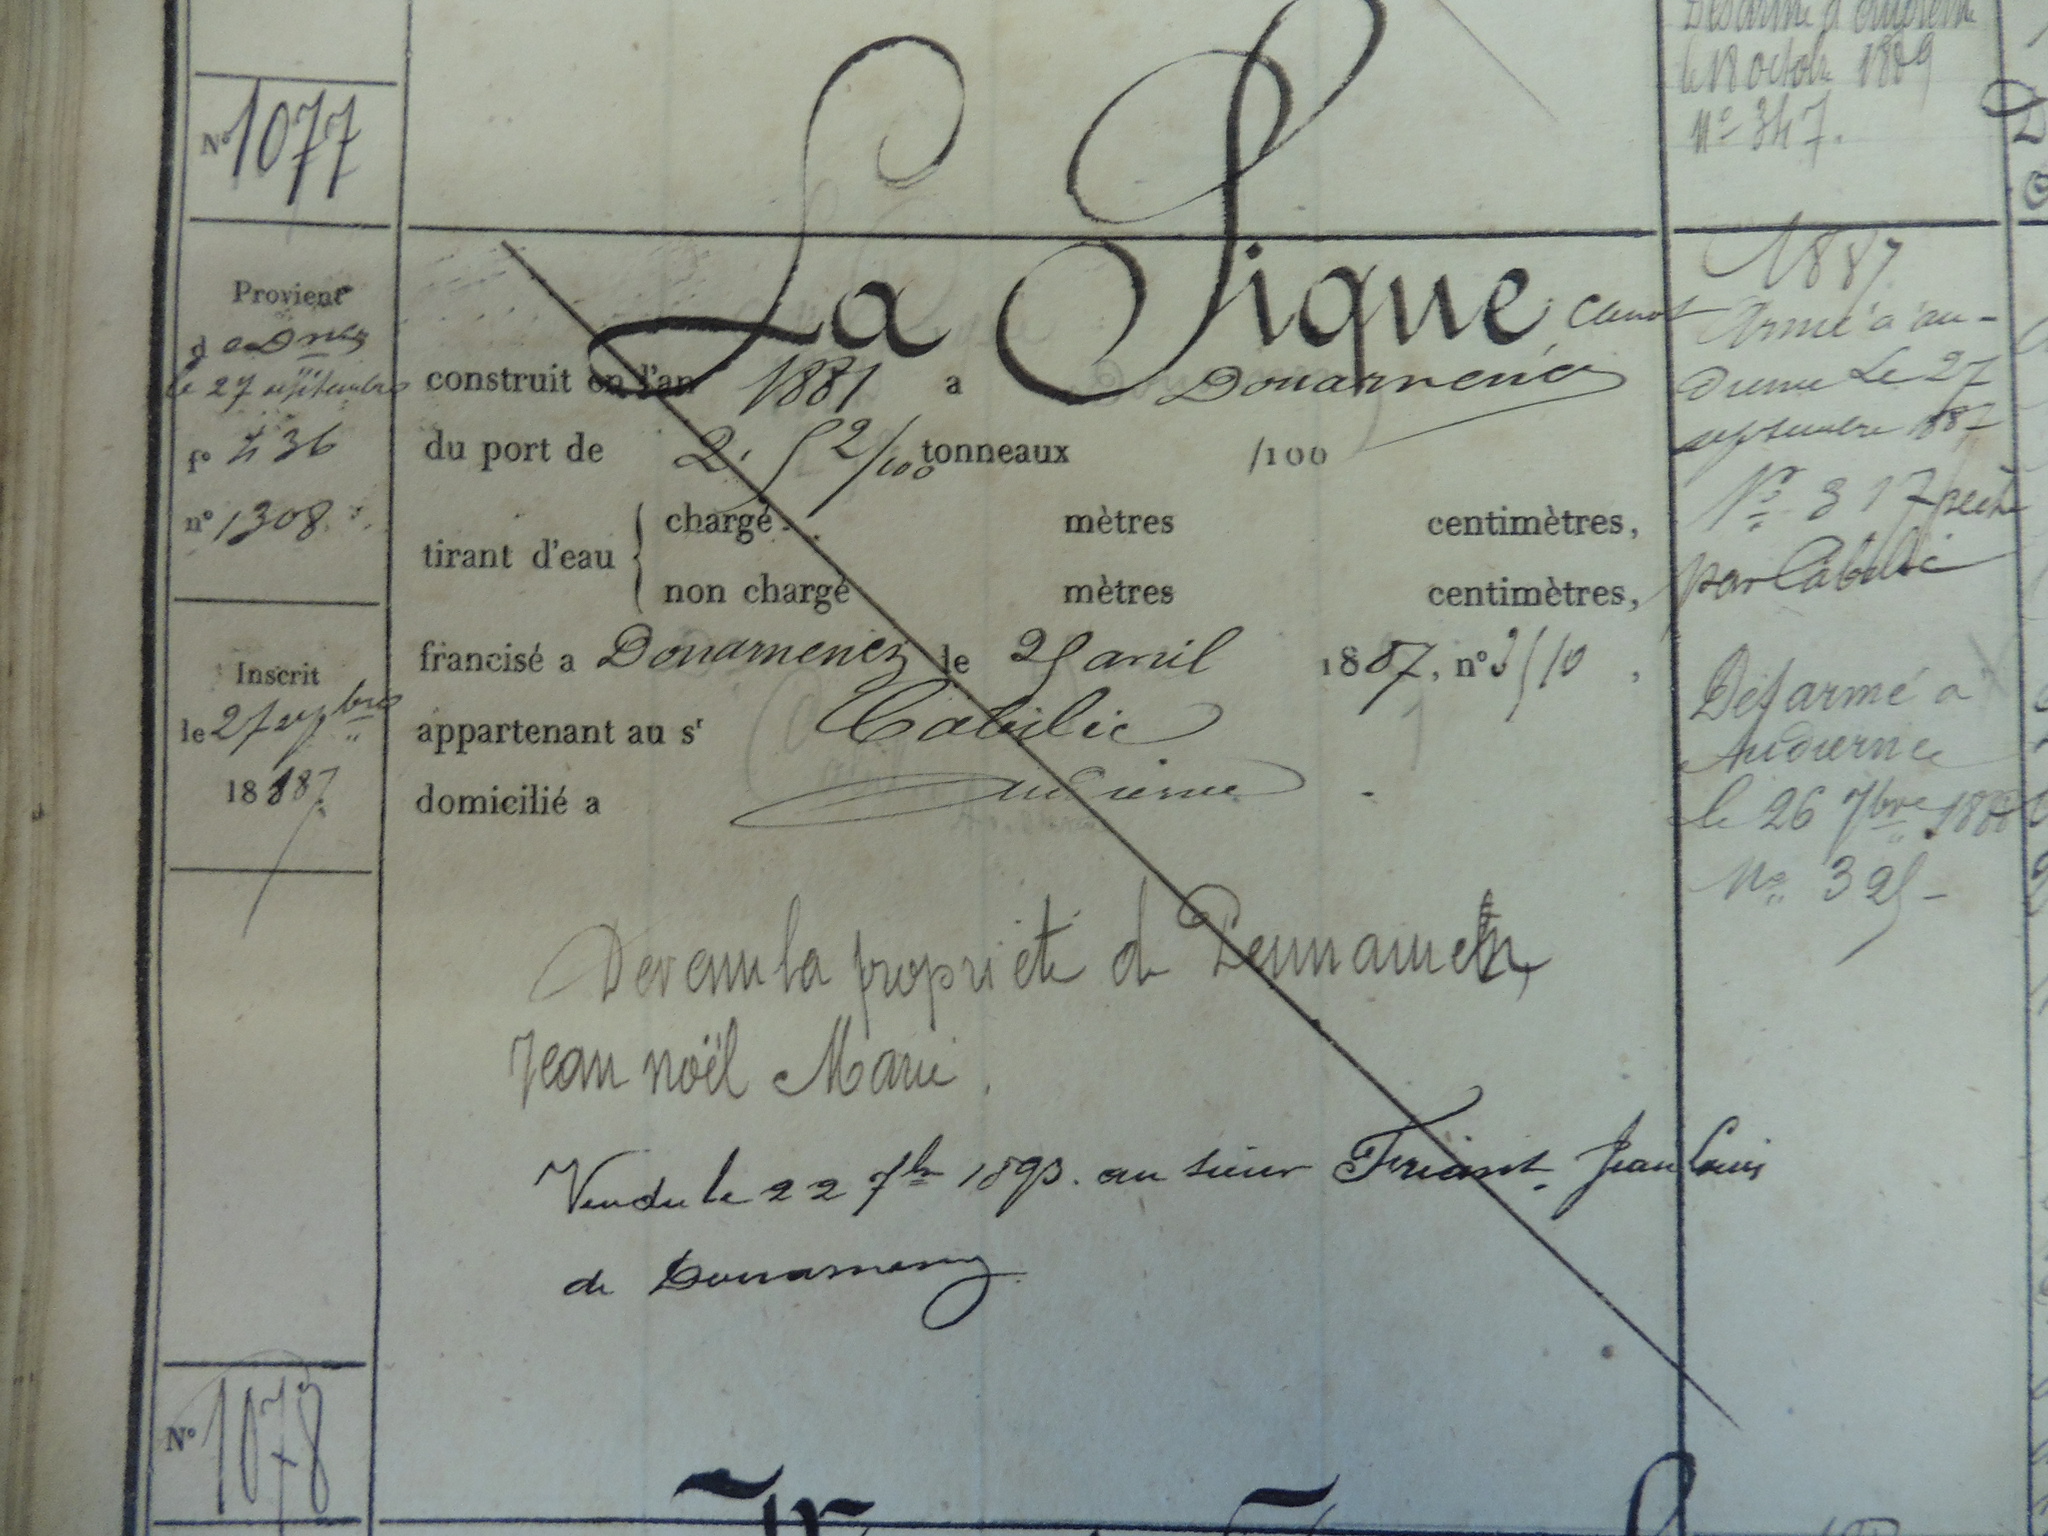 Désarmé à Audierne
le 18 octobre 1889
N° 347.
N° 1077
La Pique Canot
Provient
de Dnez
le 27 septembre
f° 436
n° 1308
construit en l'an 1881 a Douarnenez
du port de 2. 52/100 tonneaux /100
tirant d'eau
chargé mètres centimètres,
non chargé mètres centimètres,
francisé a Douarnenez le 25 avril 1887, n° 3510,
appartenant au sr Cabilic
domicilié a Audierne
Inscrit
le 27 7bre
1887
Devenu la propriété de
Jean noël Marie.
Vendu le 22 7bre 1890. au sieur Friant Jean Louis
de Douarnenez
1887
Armé à au-
dierne le 27
septembre 1887
N° 317 pêche
par Cabilic
Désarmé a
Audierne
le 26 7bre 1888
N° 325
N° 1078